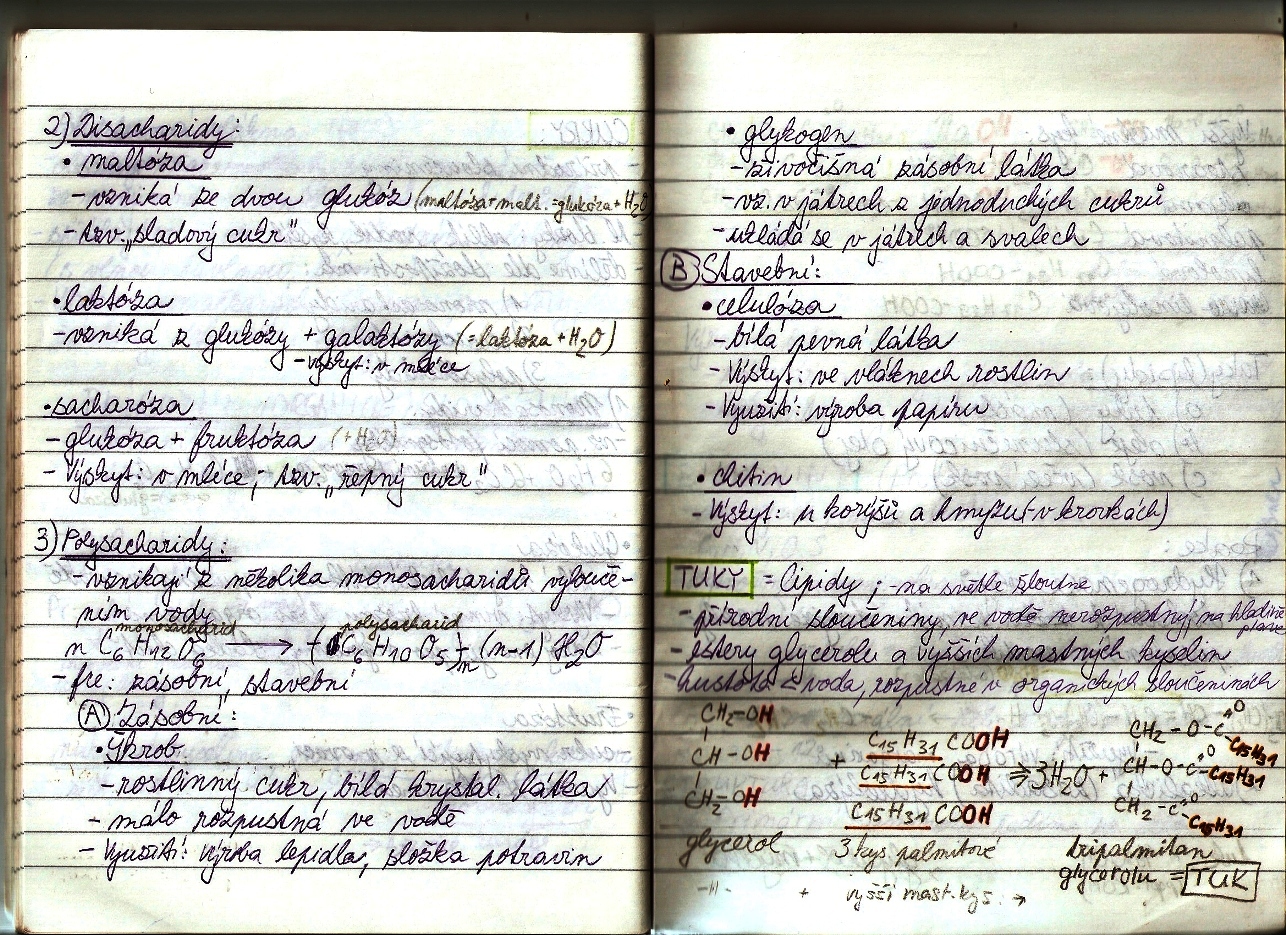 2) Disacharidy:
• maltóza
- vzniká ze dvou glukóz (maltóza+malt. =glukóza + H₂O)
- tzv. „sladový cukr"
• laktóza
- vzniká z glukózy + galaktózy (= laktóza + H₂O)
- výskyt: v mléce
• sacharóza
- glukóza + fruktóza (+H₂O)
- Výskyt: v mléce ; tzv. „řepný cukr"
3) Polysacharidy:
- vznikají z několika monosacharidů vylouče-
ním vody
monosacharid polysacharid
n C₆H₁₂O₆ → (C₆H₁₀O₅)ₙ + (n-1) H₂O
- fce: zásobní, stavební
A Zásobní:
• škrob
- rostlinný cukr, bílá krystal. látka
- málo rozpustná ve vodě
- Využití: výroba lepidla, složka potravin
• glykogen
- živočišná zásobní látka
- vz. v játrech z jednoduchých cukrů
- ukládá se v játrech a svalech
B Stavební:
• celulóza
- bílá pevná látka
- Výskyt: ve vláknech rostlin
- Využití: výroba papíru
• chitin
- Výskyt: u korýšů a hmyzu (-v krovkách)
TUKY = lipidy ; - na světle žloutne
- přírodní sloučeniny, ve vodě nerozpustný, na hladině
plave
- estery glycerolu a vyšších mastných kyselin
- hustota < voda, rozpustné v organických sloučeninách
CH₂-OH C₁₅H₃₁COOH CH₂-O-C=O C₁₅H₃₁
CH-OH + C₁₅H₃₁COOH ⇒ 3H₂O + CH-O-C=O C₁₅H₃₁
CH₂-OH C₁₅H₃₁COOH CH₂-C=O C₁₅H₃₁
glycerol 3 kys palmitové tripalmitan
glycerolu = TUK
-11- + vyšší mast. kys. →